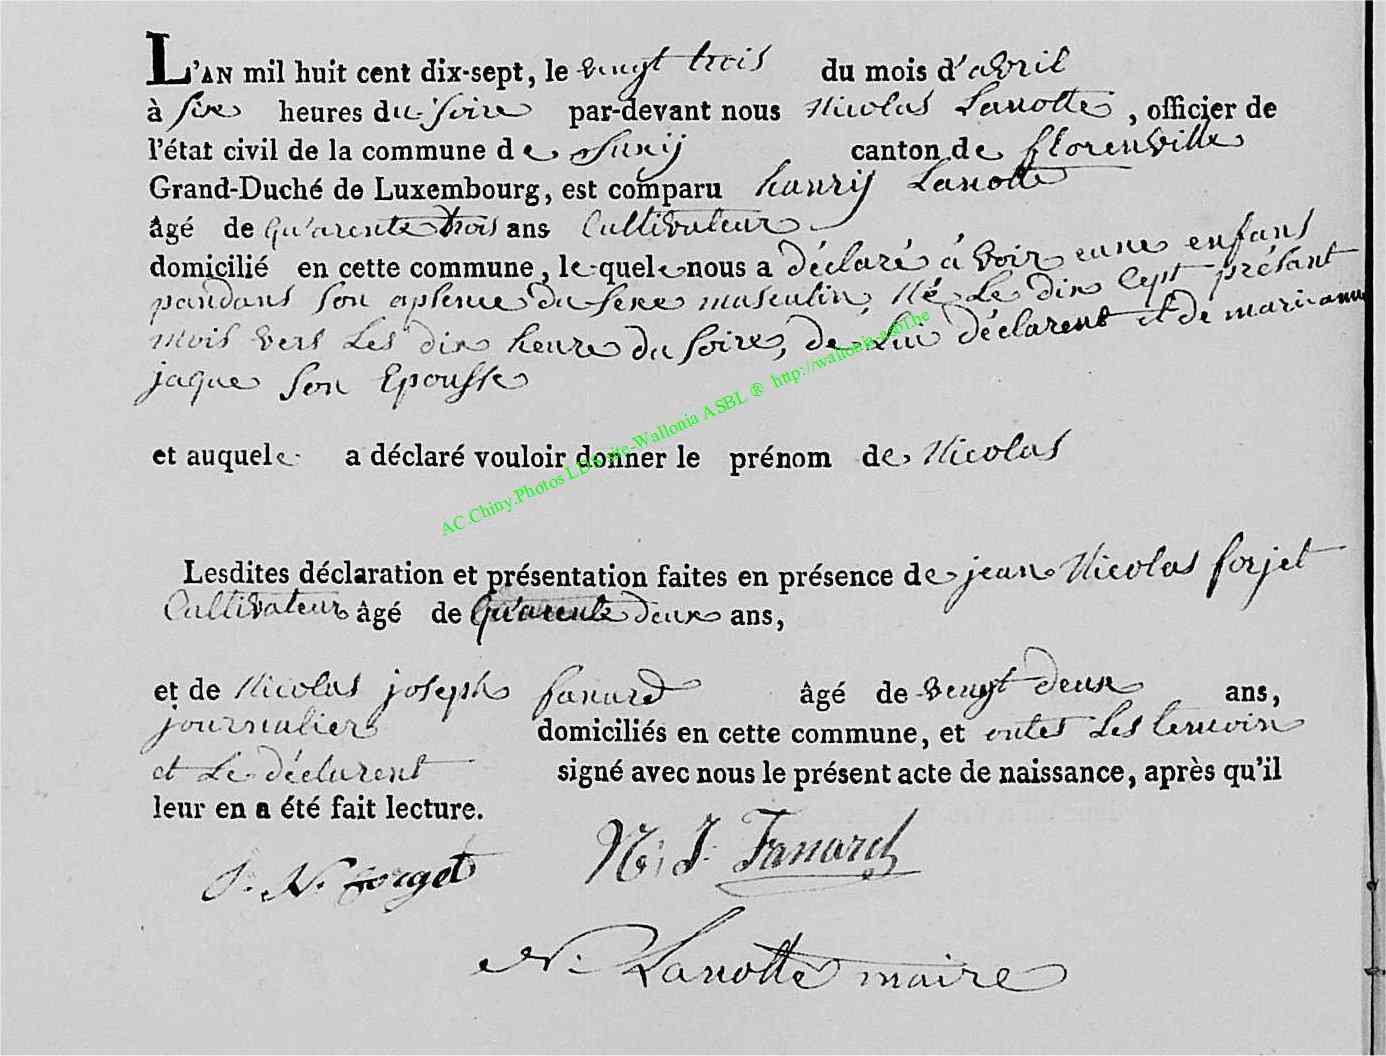 L'AN mil huit cent dix-sept, le vengt trois du mois d'avril
à sixe heures du soire par-devant nous Nicolas Lanotte, officier de
l'état civil de la commune de Suxÿ canton de florenville
Grand-Duché de Luxembourg, est comparu hanrÿ Lanotte
âgé de qu'arente trois ans Cultivateur
domicilié en cette commune, lequele nous a déclaré à voir eune enfans
pandans son apsence du sexe masculin, Né Le dix sept présant
mois vers Les dix heure du soire, de Lui déclarent et de marianne
jaque son Epousse
et auquele a déclaré vouloir donner le prénom de Nicolas
Lesdites déclaration et présentation faites en présence de jean Nicolas forjet
Cultivateur âgé de qu'arente deux ans,
et de Nicolas joseph fanard âgé de vengt deux ans,
journalier domiciliés en cette commune, et ontes Les temoin
et Le déclarent signé avec nous le présent acte de naissance, après qu'il
leur en a été fait lecture.
J. N. forget N. J. Fanard
N. Lanotte maire
AC.Chiny.Photos LDA site-Wallonia ASBL ® http://wallonia-asbl.be